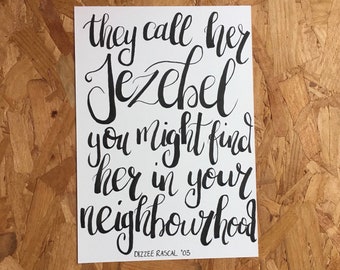 they call her
Jezebel
you might find
her in your
neighbourhood
DIZZEE RASCAL '03